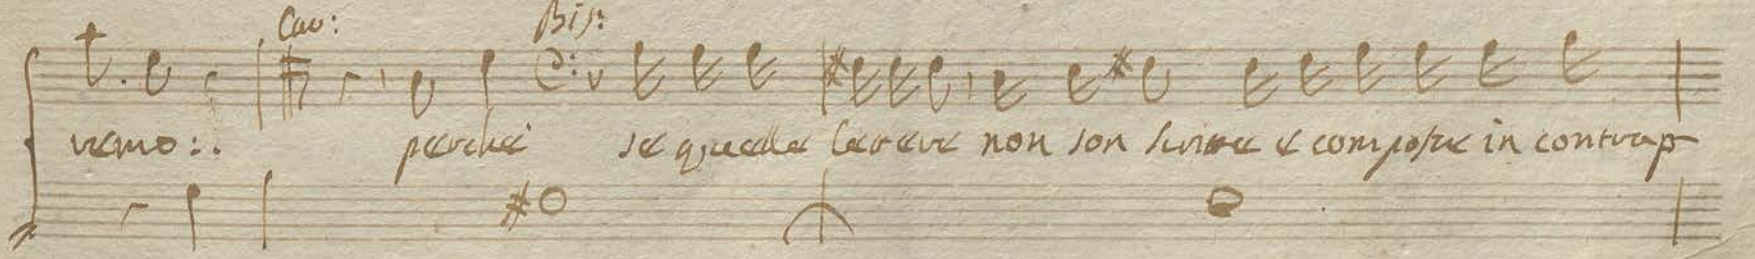 Cav: Bis:
vemo:. perché se quelle lettere non son scritte e composte in contrap